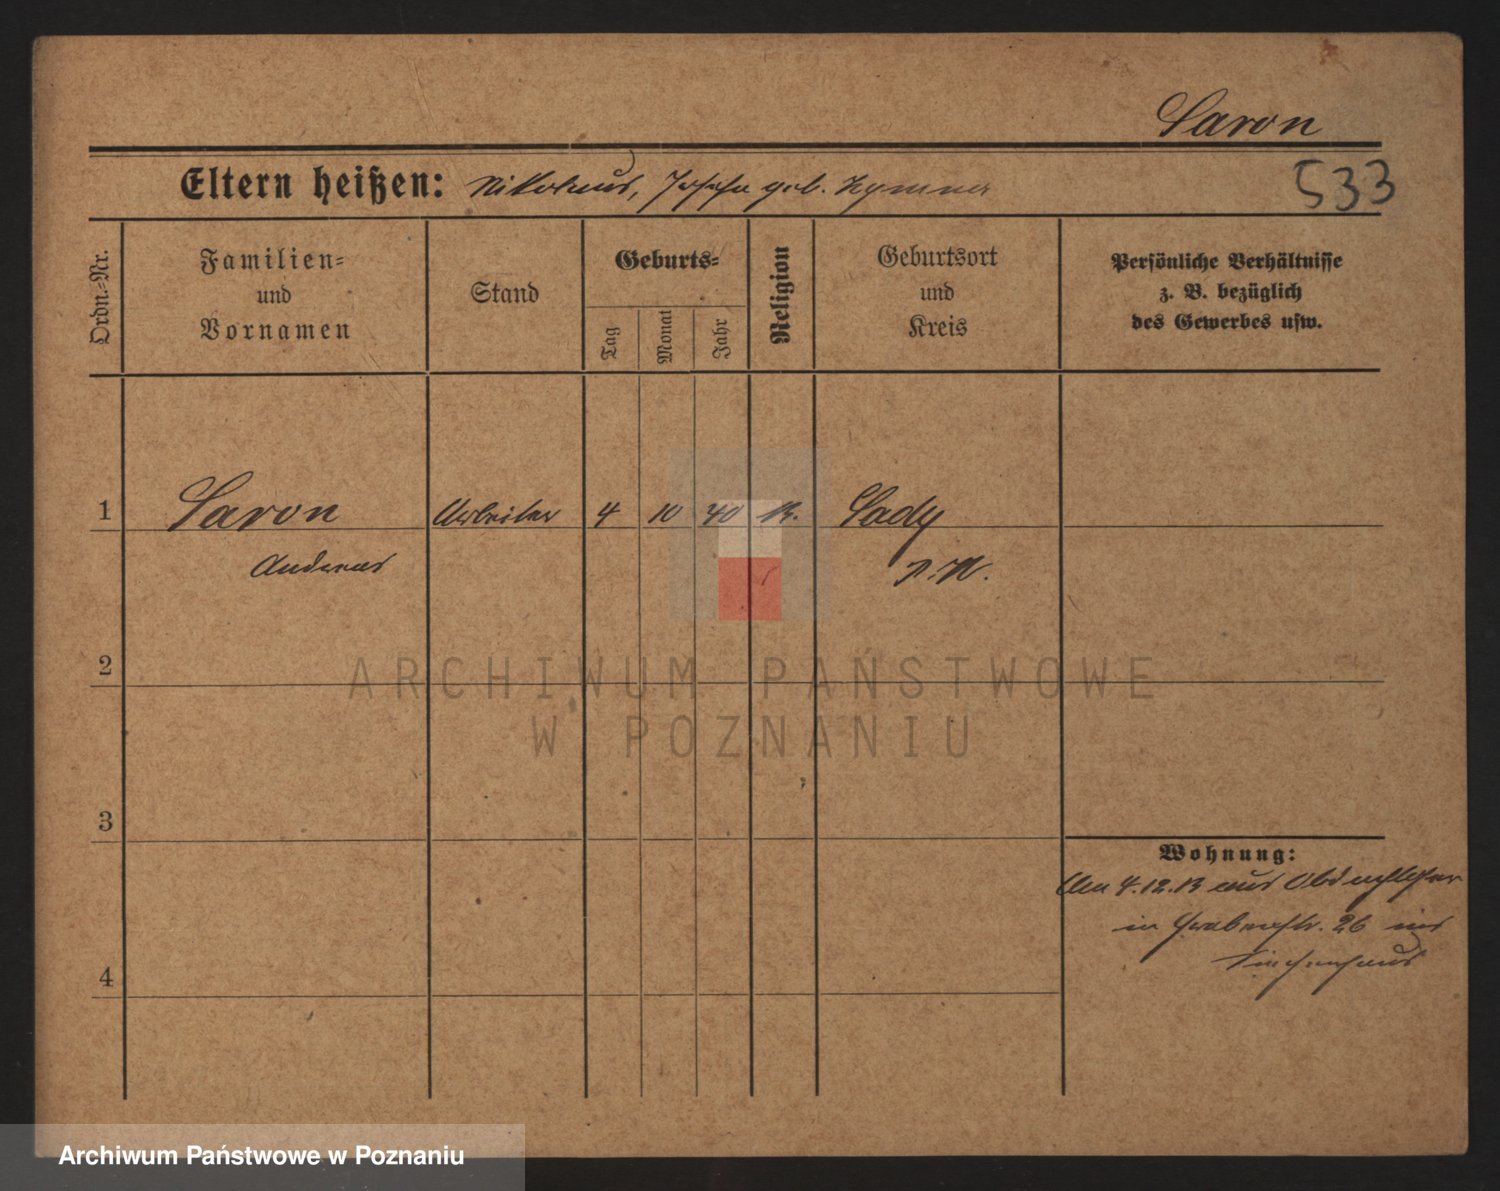 Saron
Eltern heißen: Nikolaus, Josefa geb.
533
Ordn.-Nr.
Familien-
und
Vornamen
Stand
Geburts-
Tag
Monat
Jahr
Religion
Geburtsort
und
Kreis
Persönliche Verhältnisse
z. B. bezüglich
des Gewerbes usw.
1 Saron Arbeiter 4 10 40 K. Sady
Andreas P. W.
2
3
4
Wohnung:
Am 4.12.13 aus
in Grabenstr. 26 ins
Siechenhaus
ARCHIWUM PAŃSTWOWE
W POZNANIU
Archiwum Państwowe w Poznaniu